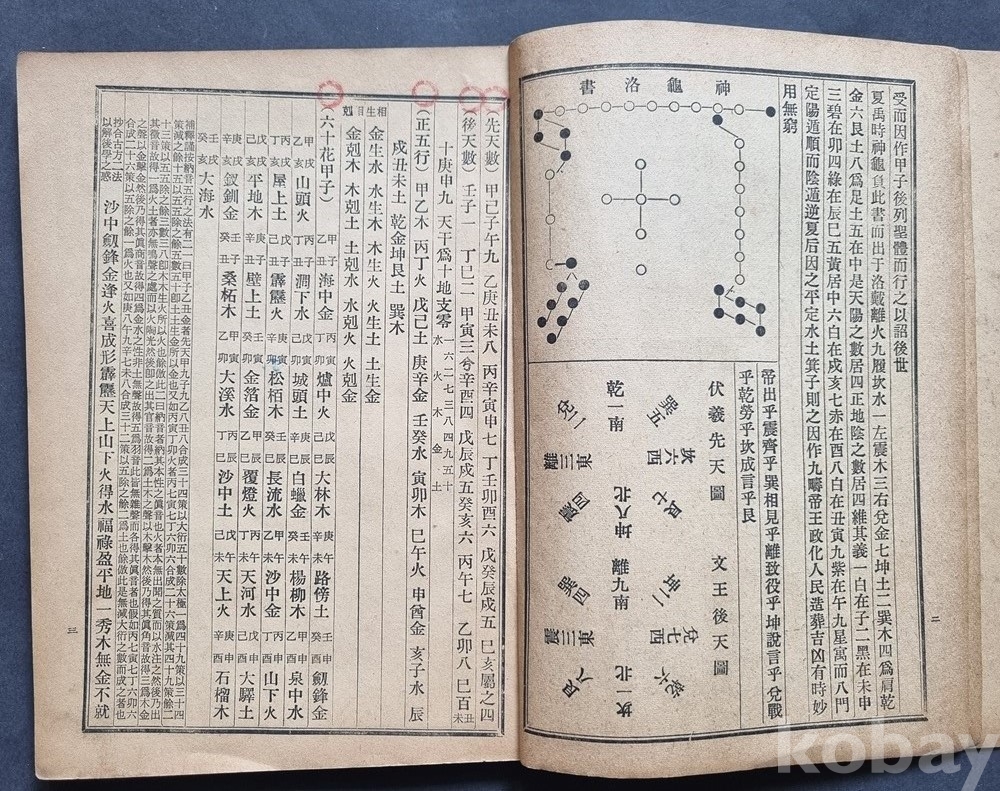 受而因作甲子後列聖體而行之以詔後世
夏禹時神龜負此書而出于洛戴離火九履坎水一左震木三右兌金七坤土二巽木四爲肩乾
金六艮土八爲足土五在中是天陽之數居四正地陰之數居四維其義一白在子二黑在未申
三碧在卯四綠在辰巳五黃居中六白在戌亥七赤在酉八白在丑寅九紫在午九星寓而八門
定陽遁順而陰遁逆夏后因之平定水土箕子則之因作九疇帝王政化人民造葬吉凶有時妙
用無窮
神龜洛書
帝出乎震齊乎巽相見乎離致役乎坤說言乎兌戰
乎乾勞乎坎成言乎艮
伏羲先天圖
乾一南
兌二
離三東
震四
巽五
坎六西
艮七
坤八北
文王後天圖
離九南
坤二
兌七西
乾六
坎一北
艮八
震三東
巽四
二
(先天數) 甲己子午九 乙庚丑未八 丙辛寅申七 丁壬卯酉六 戊癸辰戌五 巳亥屬之四
(後天數) 壬子一 丁巳二 甲寅三 辛酉四 戊辰戌五 癸亥六 丙午七 乙卯八 巳百丑未
十庚申九 天干爲十地支零 水一六火二七木三八金四九土五十
(正五行) 甲乙木 丙丁火 戊己土 庚辛金 壬癸水 寅卯木 巳午火 申酉金 亥子水 辰
戌丑未土 乾金坤艮土 巽木
相生相剋
金生水 水生木 木生火 火生土 土生金
金剋木 木剋土 土剋水 水剋火 火剋金
(六十花甲子)
甲子乙丑海中金 丙寅丁卯爐中火 戊辰己巳大林木 庚午辛未路傍土 壬申癸酉劒鋒金
甲戌乙亥山頭火 丙子丁丑澗下水 戊寅己卯城頭土 庚辰辛巳白蠟金 壬午癸未楊柳木 甲申乙酉泉中水
丙戌丁亥屋上土 戊子己丑霹靂火 庚寅辛卯松栢木 壬辰癸巳長流水 甲午乙未沙中金 丙申丁酉山下火
戊戌己亥平地木 庚子辛丑壁上土 壬寅癸卯金箔金 甲辰乙巳覆燈火 丙午丁未天河水 戊申己酉大驛土
庚戌辛亥釵釧金 壬子癸丑桑柘木 甲寅乙卯大溪水 丙辰丁巳沙中土 戊午己未天上火 庚申辛酉石榴木
壬戌癸亥大海水
抄合古方二法以解後學之惑 沙中劒鋒金逢火喜成形霹靂天上山下火得水福祿盈平地一秀木無金不就
三
kobay